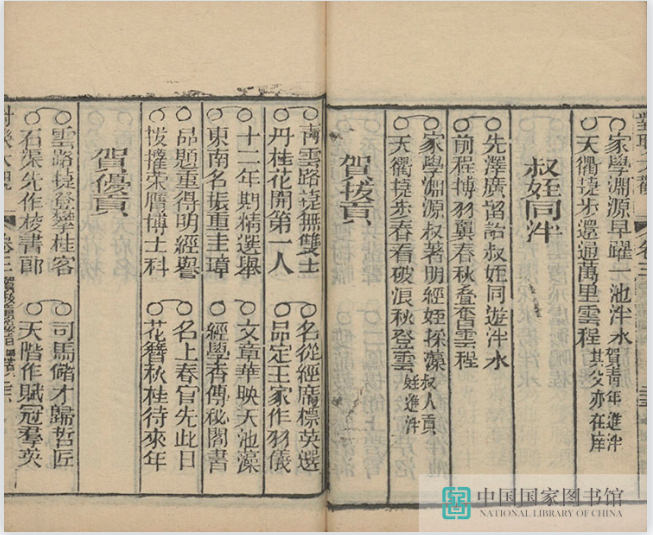 家學淵源早躍一池泮水 賀青年進泮其父亦在庠
天衢捷步還通萬里雲程
叔姪同泮
先澤廣留詒叔姪同遊泮水
前程摶羽翼春秋叠奮雲程
家學淵源叔著明經姪採藻 叔人貢姪進泮
天衢捷步春看破浪秋登雲
賀拔貢
青雲路捷無雙士 名從經廣標英選
丹桂花開第一人 品定王家作羽儀
十二年期精選舉 文章華映天池藻
東南名振重圭璋 經學香傳秘閣書
品題重得明經譽 名上春官先此日
拔擢榮膺博士科 花簪秋桂待來年
賀優貢
雲路捷登攀桂客 司馬儲才歸哲匠
石渠先作校書郎 天階作賦冠羣英
卷三
中国国家图书馆
NATIONAL LIBRARY OF CHINA